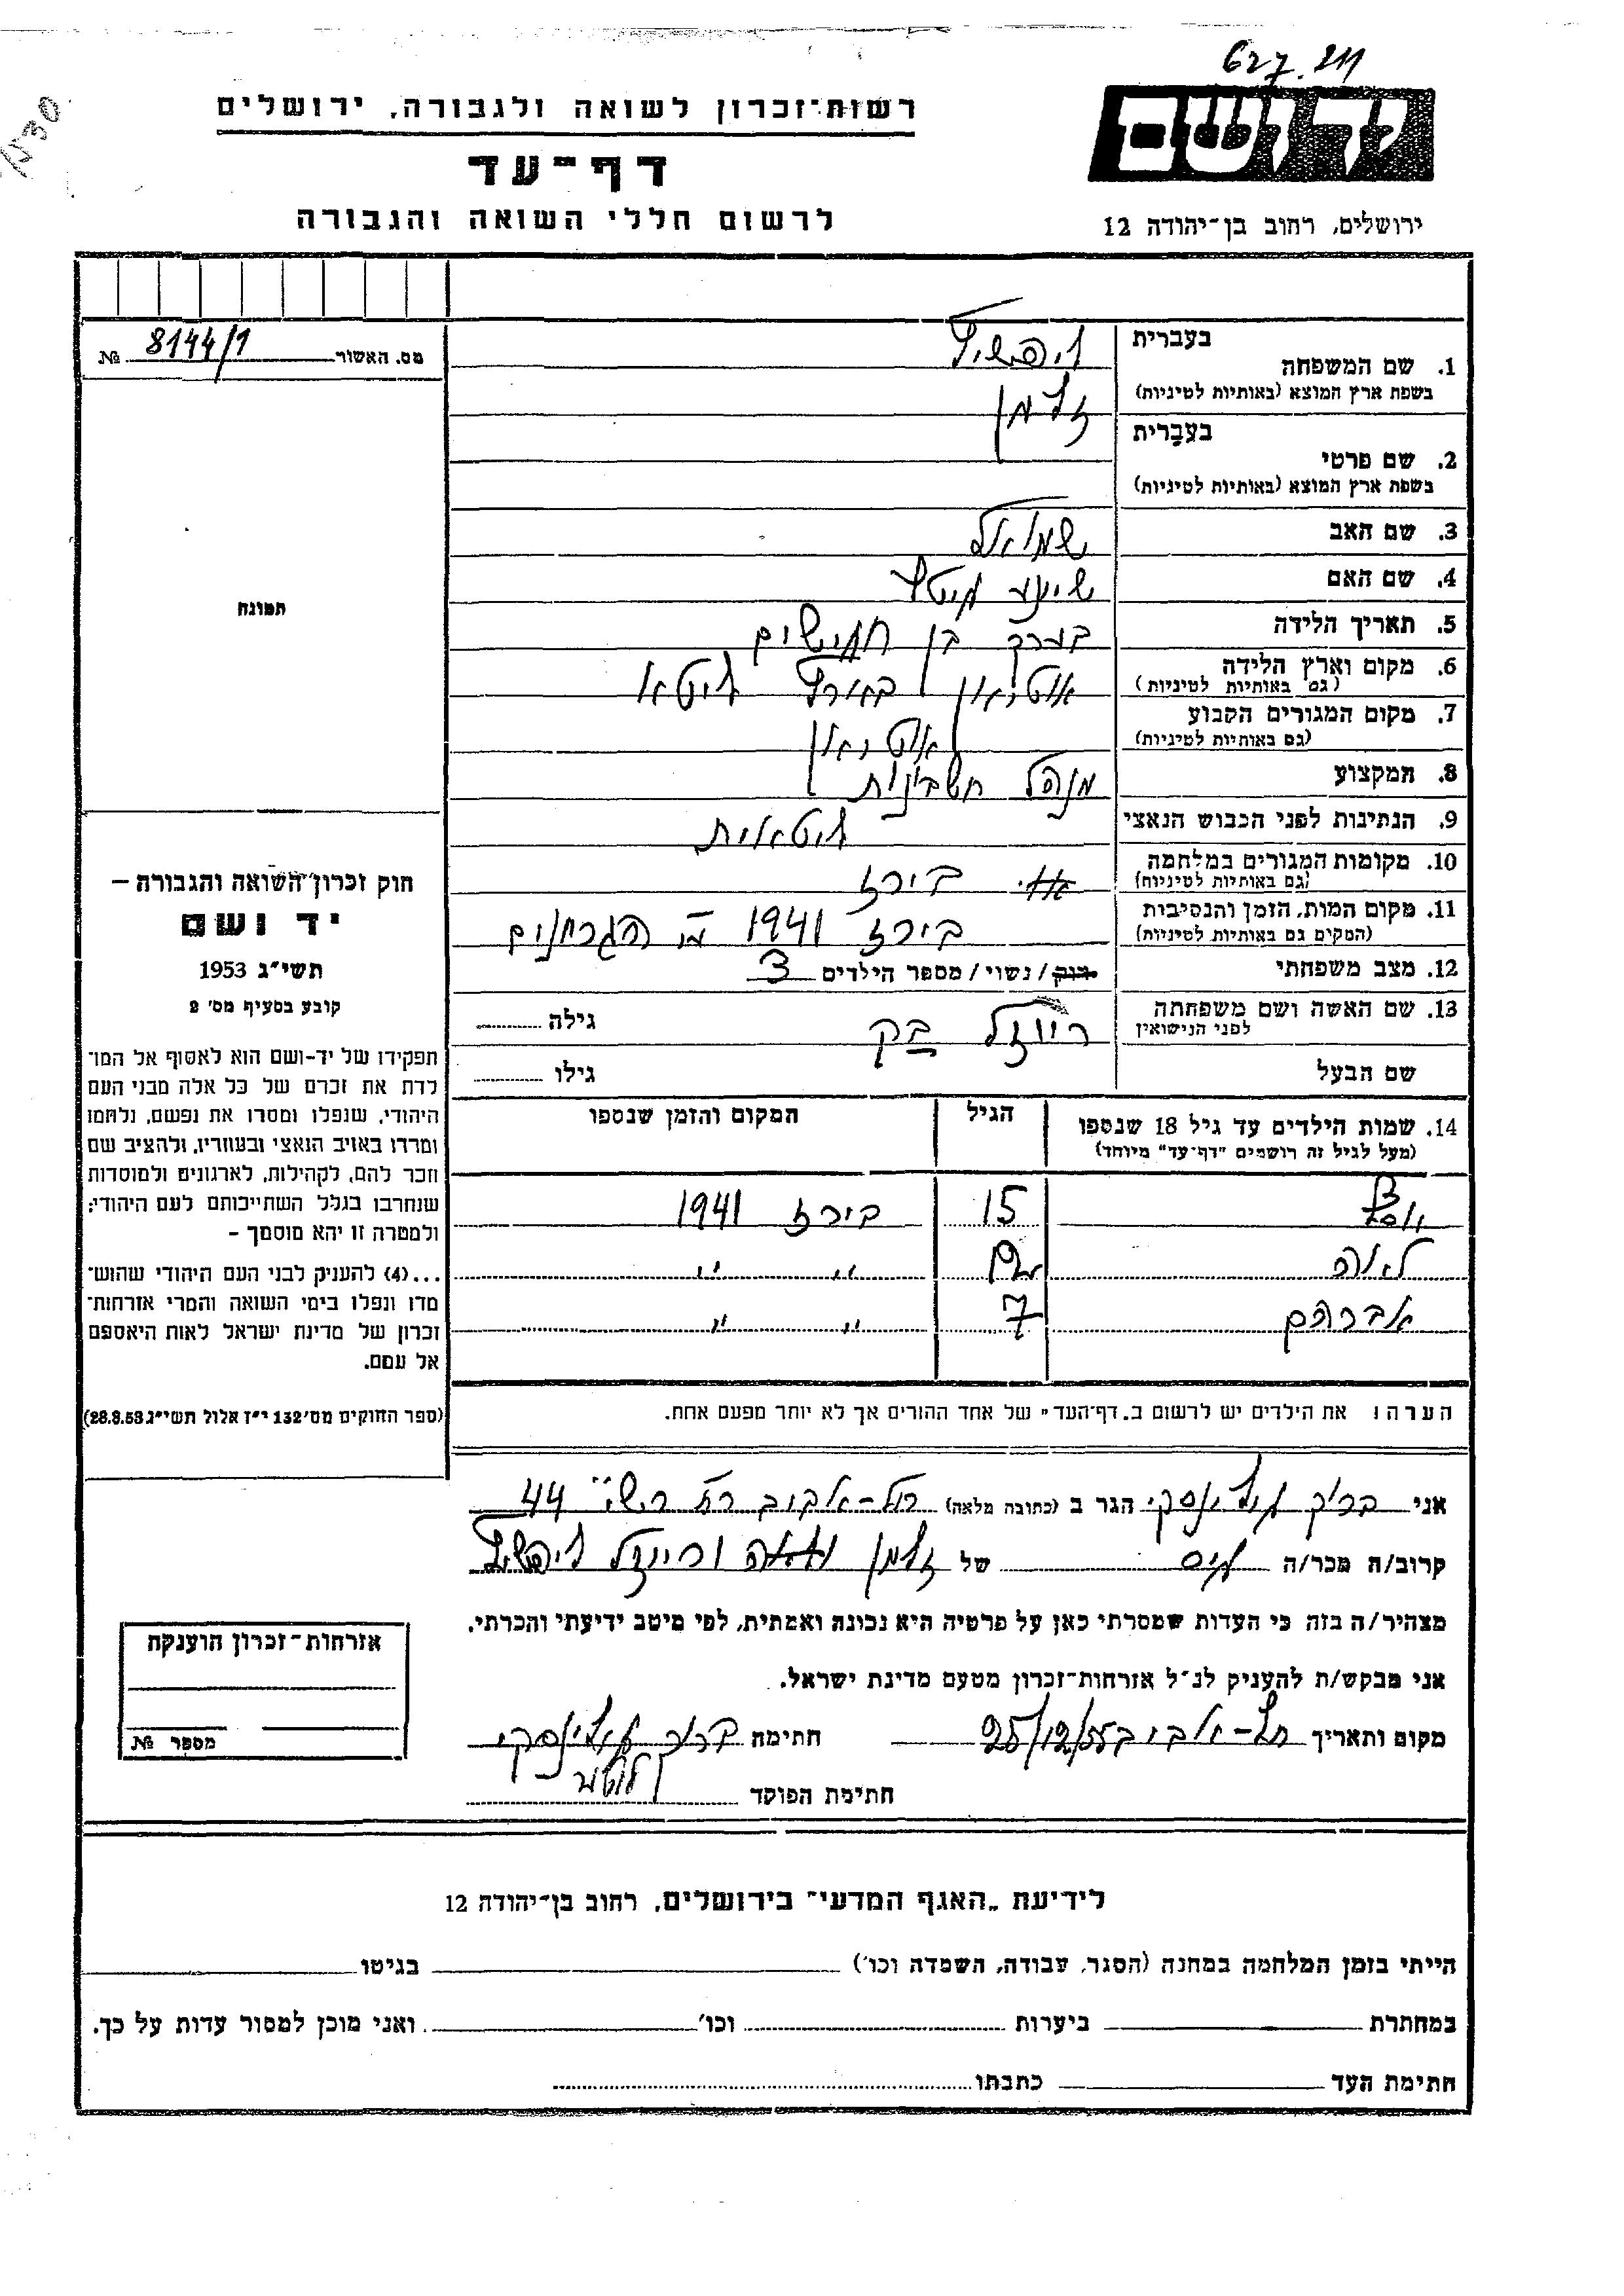 627.211
רשות־זכרון לשואה ולגבורה, ירושלים
יד ושם
דף־עד
לרשום חללי השואה והגבורה
ירושלים, רחוב בן־יהודה 12
מס. האשור 8144/1 №
1. שם המשפחה בעברית ליפשיץ
בשפת ארץ המוצא (באותיות לטיניות)
זלמן
2. שם פרטי בעברית
בשפת ארץ המוצא (באותיות לטיניות)
3. שם האב שמואל
4. שם האם שיינע
5. תאריך הלידה בערך בן חמישים
6. מקום וארץ הלידה
(גם באותיות לטיניות)
7. מקום המגורים הקבוע
(גם באותיות לטיניות)
8. המקצוע מנהל חשבונות
9. הנתינות לפני הכבוש הנאצי ליטאית
10. מקומות המגורים במלחמה בירז
(גם באותיות לטיניות)
11. מקום המות, הזמן והנסיבות בירז 1941 הגרמנים
(המקום גם באותיות לטיניות)
12. מצב משפחתי רווק / נשוי / מספר הילדים 3
13. שם האשה ושם משפחתה ריזל בק גילה
לפני הנישואין
שם הבעל גילו
14. שמות הילדים עד גיל 18 שנספו הגיל המקום והזמן שנספו
(מעל לגיל זה רושמים "דף־עד" מיוחד)
יוסף 15 בירז 1941
לאה " "
אברהם 7 " "
הערה: את הילדים יש לרשום ב„דף־העד" של אחד ההורים אך לא יותר מפעם אחת.
תמונה
חוק זכרון־השואה והגבורה –
יד ושם
תשי״ג 1953
קובע בסעיף מס׳ 2
תפקידו של יד־ושם הוא לאסוף אל המו־
לדת את זכרם של כל אלה מבני העם
היהודי, שנפלו ומסרו את נפשם, נלחמו
ומרדו באויב הנאצי ובעוזריו, ולהציב שם
וזכר להם, לקהילות, לארגונים ולמוסדות
שנחרבו בגלל השתייכותם לעם היהודי;
ולמטרה זו יהא מוסמך –
...(4) להעניק לבני העם היהודי שהוש־
מדו ונפלו בימי השואה והמרי אזרחות־
זכרון של מדינת ישראל לאות היאספם
אל עמם.
(ספר החוקים מס׳ 132 י״ז אלול תשי״ג 28.8.53)
אני ברוך הגר ב (כתובה מלאה) תל-אביב 44
קרוב/ה מכר/ה גיס של זלמן וריזל ליפשיץ
מצהיר/ה בזה כי העדות שמסרתי כאן על פרטיה היא נכונה ואמתית, לפי מיטב ידיעתי והכרתי.
אני מבקש/ת להעניק לנ״ל אזרחות־זכרון מטעם מדינת ישראל.
מקום ותאריך תל-אביב 25/12/55 חתימה ברוך
חתימת הפוקד
אזרחות־זכרון הוענקה
מספר №
לידיעת „האגף המדעי" בירושלים, רחוב בן־יהודה 12
הייתי בזמן המלחמה במחנה (הסגר, עבודה, השמדה וכו׳) בגיטו
במחתרת ביערות וכו׳ ואני מוכן למסור עדות על כך.
חתימת העד כתבתו